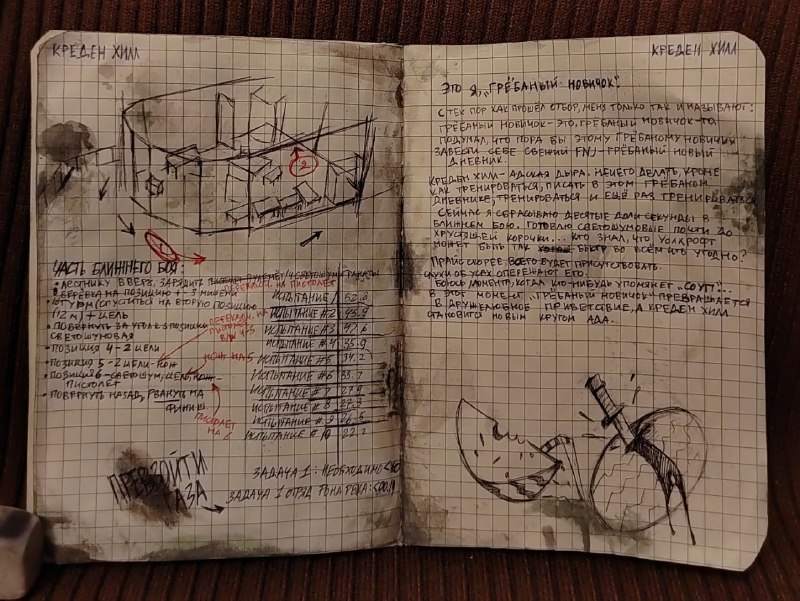 КРЕДЕН ХИЛЛ
2
1
ЧАСТЬ БЛИЖНЕГО БОЯ:
• ЛЕСТНИКУ ВВЕРХ, ЗАРЯДИТЬ 4 СВЕТОШУМ ГРАНАТЫ
• ВЕРЕВКА НА ПОЗИЦИЮ 1 - 3 МИШЕНИ
ПЕРЕКЛЮЧ. НА ПИСТОЛЕТ
• ШТУРМ (СПУСТИТЬСЯ НА ВТОРУЮ ПОЗИЦИЮ
(12 м) + ЦЕЛЬ
ПЕРЕКЛЮЧ. НА
ПИСТОЛЕТ
• ПОВЕРНУТЬ ЗА УГОЛ К 3 ПОЗИЦИИ
СВЕТОШУМОВАЯ
• ПОЗИЦИЯ 4 - 2 ЦЕЛИ
• ПОЗИЦИЯ 5 - 2 ЦЕЛИ - НОЖ
НОЖ НА 5
• ПОЗИЦИЯ 6 - СВЕТОШУМ, ЦЕЛЬ, НОЖ -
ПИСТОЛЕТ
• ПОВЕРНУТЬ НАЗАД, РВАНУТЬ НА
ФИНИШ
ПИСТОЛЕТ
НА 6
ИСПЫТАНИЕ 1
ИСПЫТАНИЕ #2
ИСПЫТАНИЕ #3
ИСПЫТАНИЕ #4
ИСПЫТАНИЕ #5 34.2
ИСПЫТАНИЕ #6
ИСПЫТАНИЕ #7
ИСПЫТАНИЕ # 8
ИСПЫТАНИЕ # 9
ИСПЫТАНИЕ # 10 22.2
ПРЕВЗОЙТИ
ГАЗА
ЗАДАЧА 1: НЕОБХОДИМО
ЗАДАЧА 1 ОТРЯД
КРЕДЕН ХИЛЛ
ЭТО Я, „ГРЁБАНЫЙ НОВИЧОК".
С ТЕХ ПОР КАК ПРОШЁЛ ОТБОР, МЕНЯ ТОЛЬКО ТАК И НАЗЫВАЮТ:
ГРЁБАНЫЙ НОВИЧОК - ЭТО, ГРЁБАНЫЙ НОВИЧОК - ТО,
ПОДУМАЛ, ЧТО ПОРА БЫ ЭТОМУ ГРЁБАНОМУ НОВИЧКУ
ЗАВЕСТИ СЕБЕ СВЕЖИЙ FNJ - ГРЁБАНЫЙ НОВЫЙ
ДНЕВНИК.
КРЕДЕН ХИЛЛ - АДСКАЯ ДЫРА. НЕЧЕГО ДЕЛАТЬ, КРОМЕ
КАК ТРЕНИРОВАТЬСЯ, ПИСАТЬ В ЭТОМ ГРЁБАНОМ
ДНЕВНИКЕ, ТРЕНИРОВАТЬСЯ И ЕЩЁ РАЗ ТРЕНИРОВАТЬСЯ
СЕЙЧАС Я СБРАСЫВАЮ ДЕСЯТЫЕ ДОЛИ СЕКУНДЫ В
БЛИЖНЕМ БОЮ. ГОТОВЛЮ СВЕТОШУМОВЫЕ ПОЧТИ ДО
ХРУСТЯЩЕЙ КОРОЧКИ... КТО ЗНАЛ, ЧТО УОЛКРОФТ
МОЖЕТ БЫТЬ ТАК БЫСТР ВО ВСЁМ ЧТО УГОДНО?
ПРАЙС СКОРЕЕ ВСЕГО БУДЕТ ПРИСУТСТВОВАТЬ.
СЛУХИ ОБ УСАХ ОПЕРЕЖАЮТ ЕГО.
БОЮСЬ МОМЕНТА, КОГДА КТО-НИБУДЬ УПОМЯНЕТ „СОУП"...
В ЭТОТ МОМЕНТ „ГРЁБАНЫЙ НОВИЧОК" ПРЕВРАЩАЕТСЯ
В ДРУЖЕЛЮБНОЕ ПРИВЕТСТВИЕ, А КРЕДЕН ХИЛЛ
СТАНОВИТСЯ НОВЫМ КРУГОМ АДА...